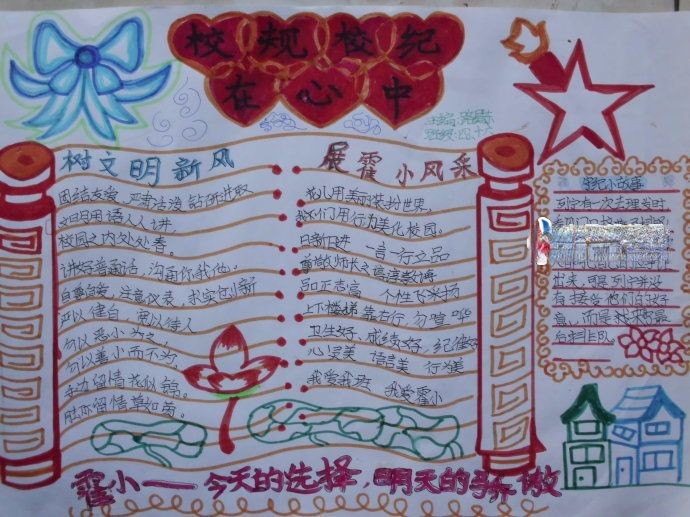 校规校纪
在心中
主编:
班级:四十六
树文明新风
团结友爱,严肃活泼,钻研进取
文明用语人人讲,
校园之内处处香。
讲好普通话,沟通你我他。
自尊自爱,注意仪表,求实创新
严以律自,宽以待人
勿以恶小为之,
勿以善小而不为。
手边留情花似锦。
脚下留情草如茵。
展霍小风采
花儿用美丽装扮世界,
我们用行为美化校园。
日新日进 一言一行立品
尊敬师长之谆谆教诲
品正志高 个性飞采扬
上下楼梯靠右行,勿喧哗
卫生好、成绩好、纪律好
心灵美 语言美 行为美
我爱我班 我爱霍小
列宁有一次去理发时,
出来,可是列宁并没
有接受他们的好
意,而是
霍小——今天的选择,明天的骄傲